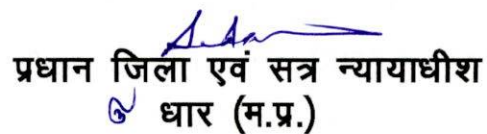 प्रधान जिला एवं सत्र न्यायाधीश
धार (म.प्र.)